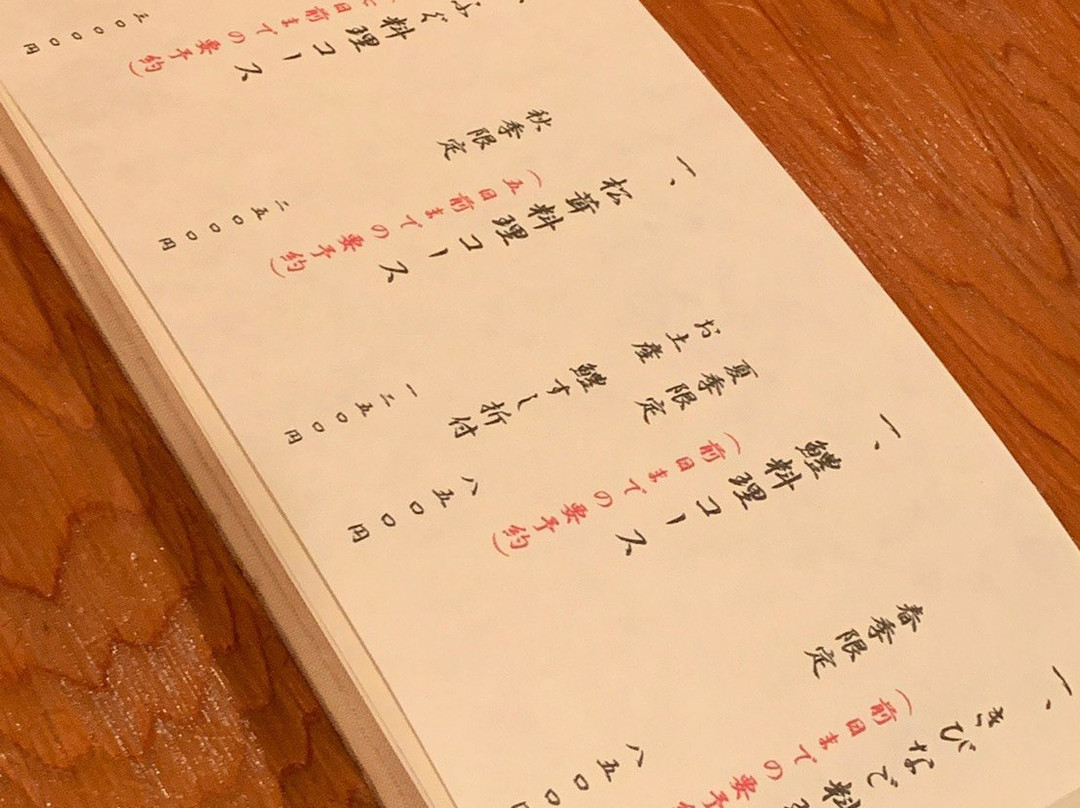 一、きびなご料
春季限定
(前日までの要
八五〇
一、鱧料理コース
夏季限定
(前日までの要予約)
八五〇〇円
お土産
鱧すし折付
一二五〇〇円
一、松茸料理コース
秋季限定
(五日前までの要予約)
二五〇〇〇円
ふぐ料理コース
日前までの要予約)
〇〇〇〇円